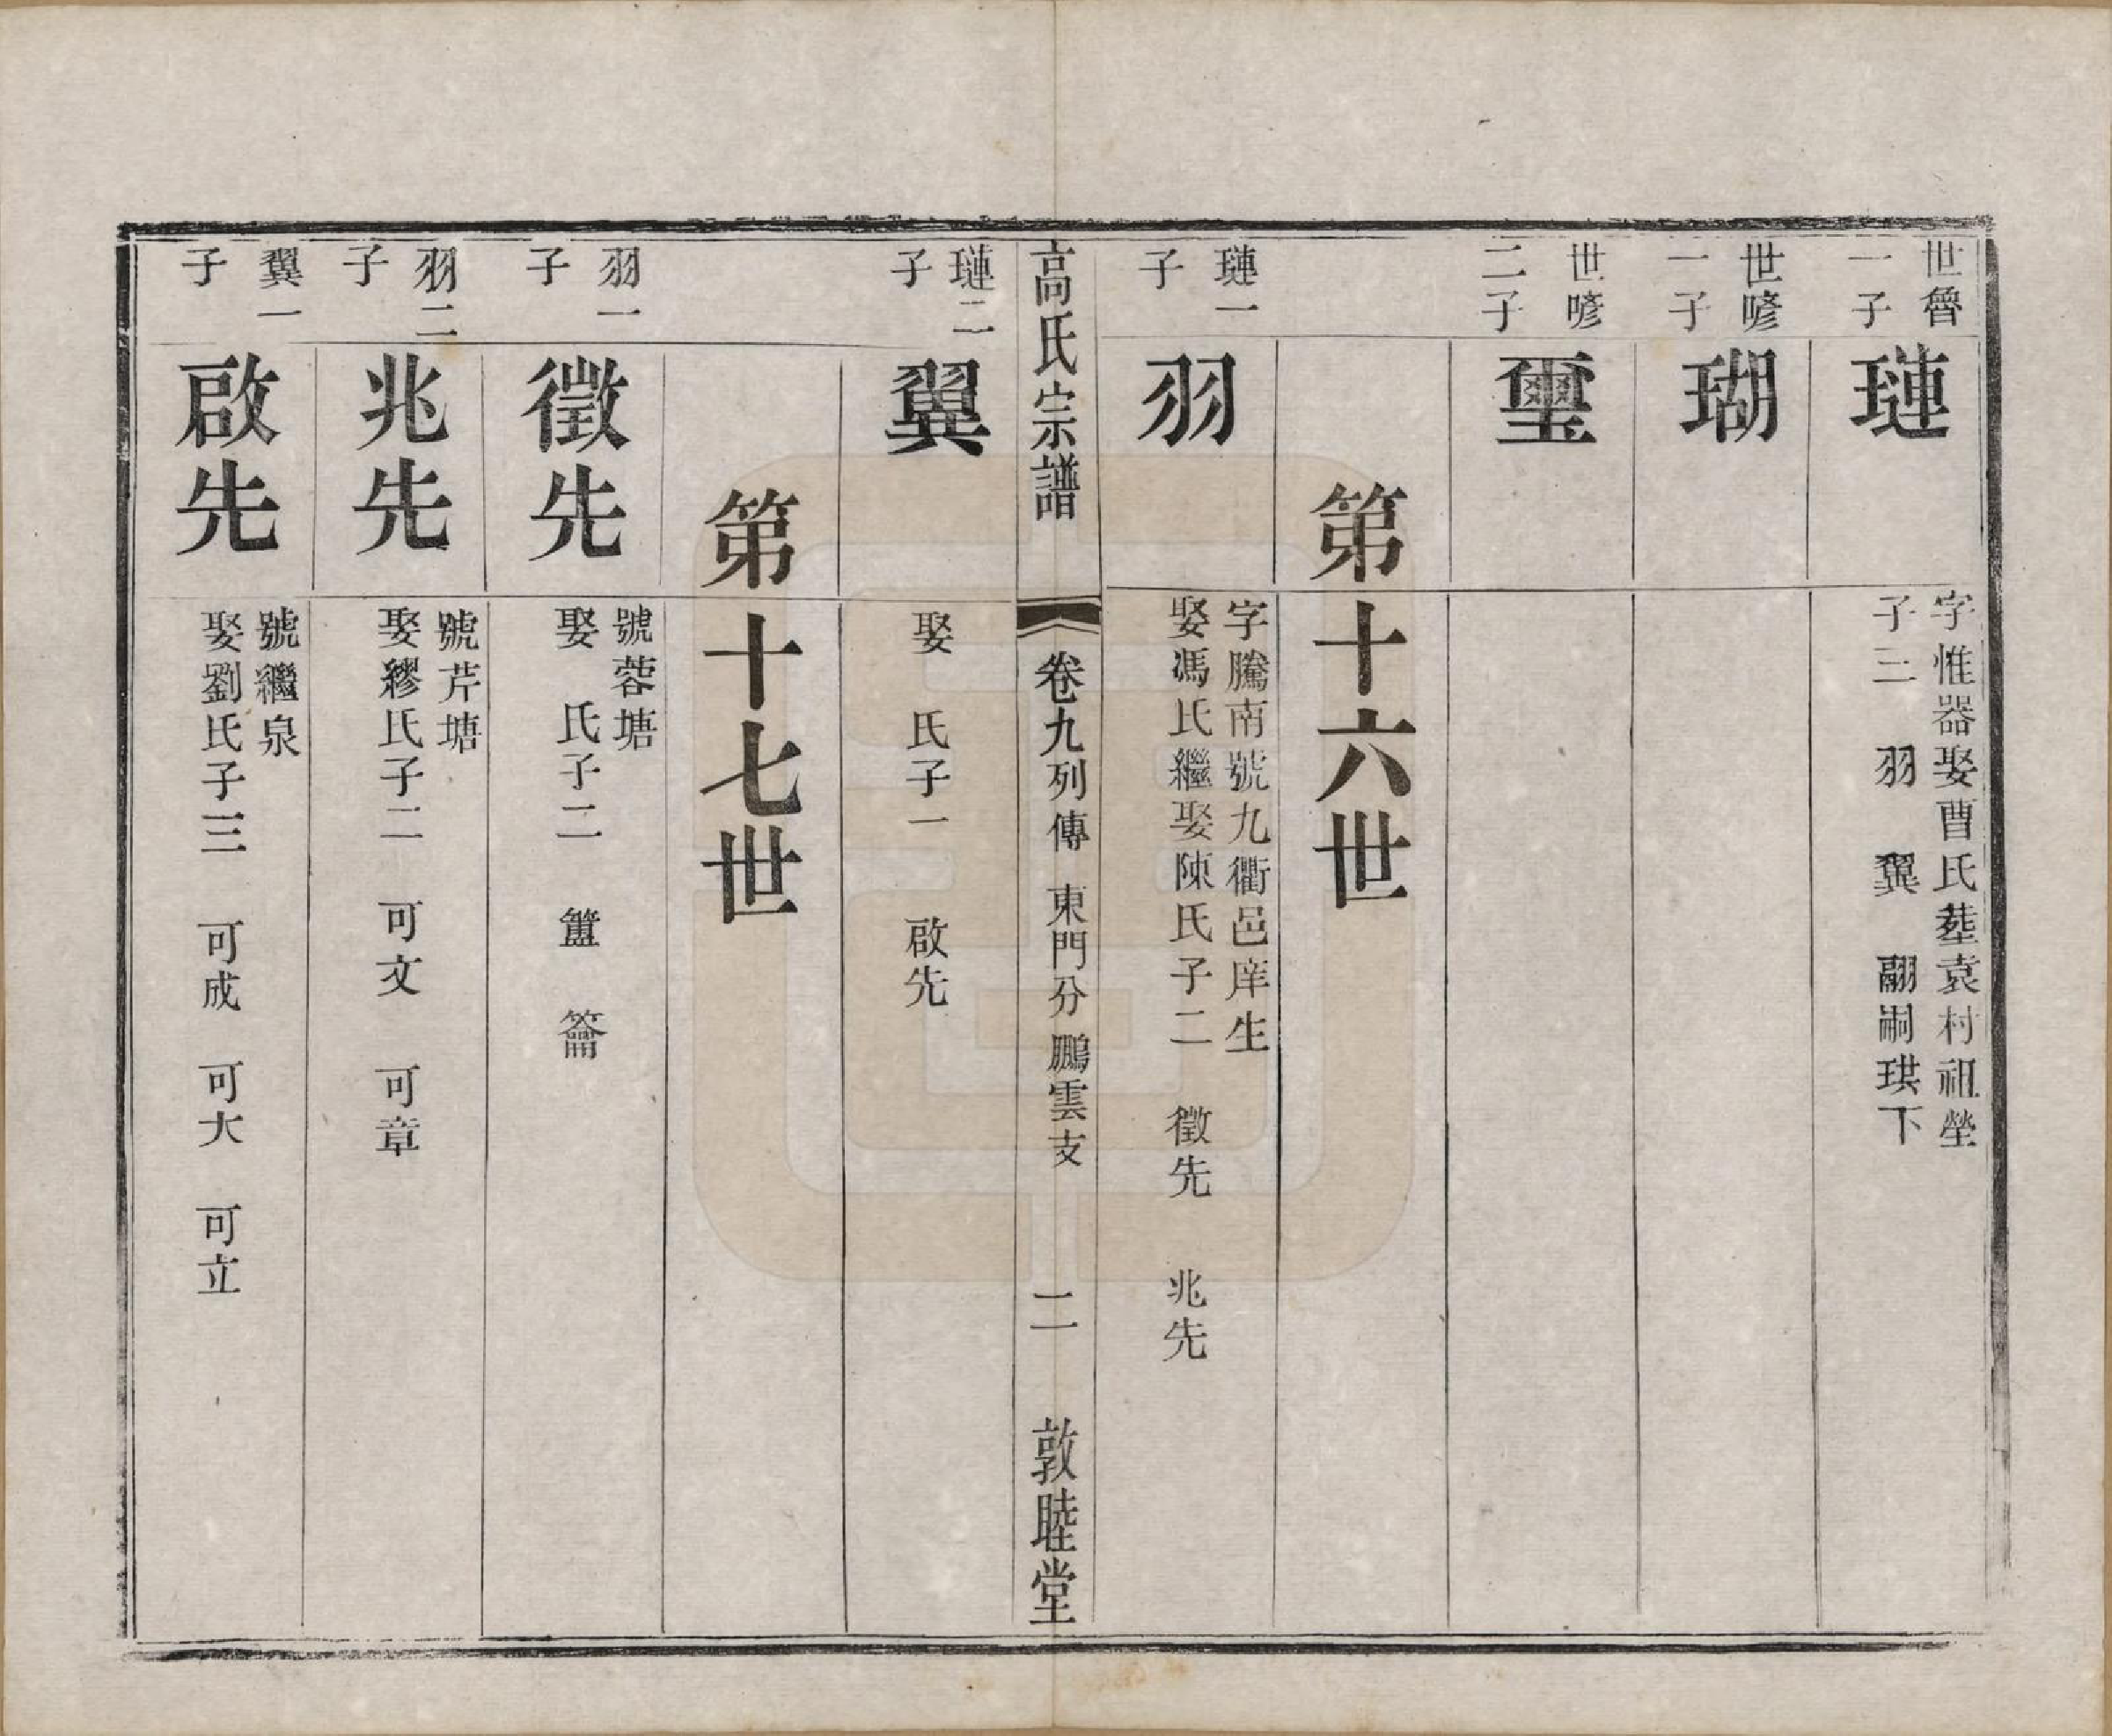 世魯
一子
璉
字惟器娶曹氏塟袁村祖塋
子三　羽　翼　翮嗣珙下
世喭
一子
瑚
世喭
二子
璽
第十六世
璉一
子
羽
字騰南號九衢邑庠生
娶馮氏繼娶陳氏子二　徵先　兆先
高氏宗譜
卷九列傳　東門分鵬雲支
二
敦睦堂
璉二
子
翼
娶　氏子一　啟先
第十七世
羽一
子
徵先
號蓉塘
娶　氏子二　簠　籥
羽二
子
兆先
號芹塘
娶繆氏子二　可文　可章
翼一
子
啟先
號繼泉
娶劉氏子三　可成　可大　可立